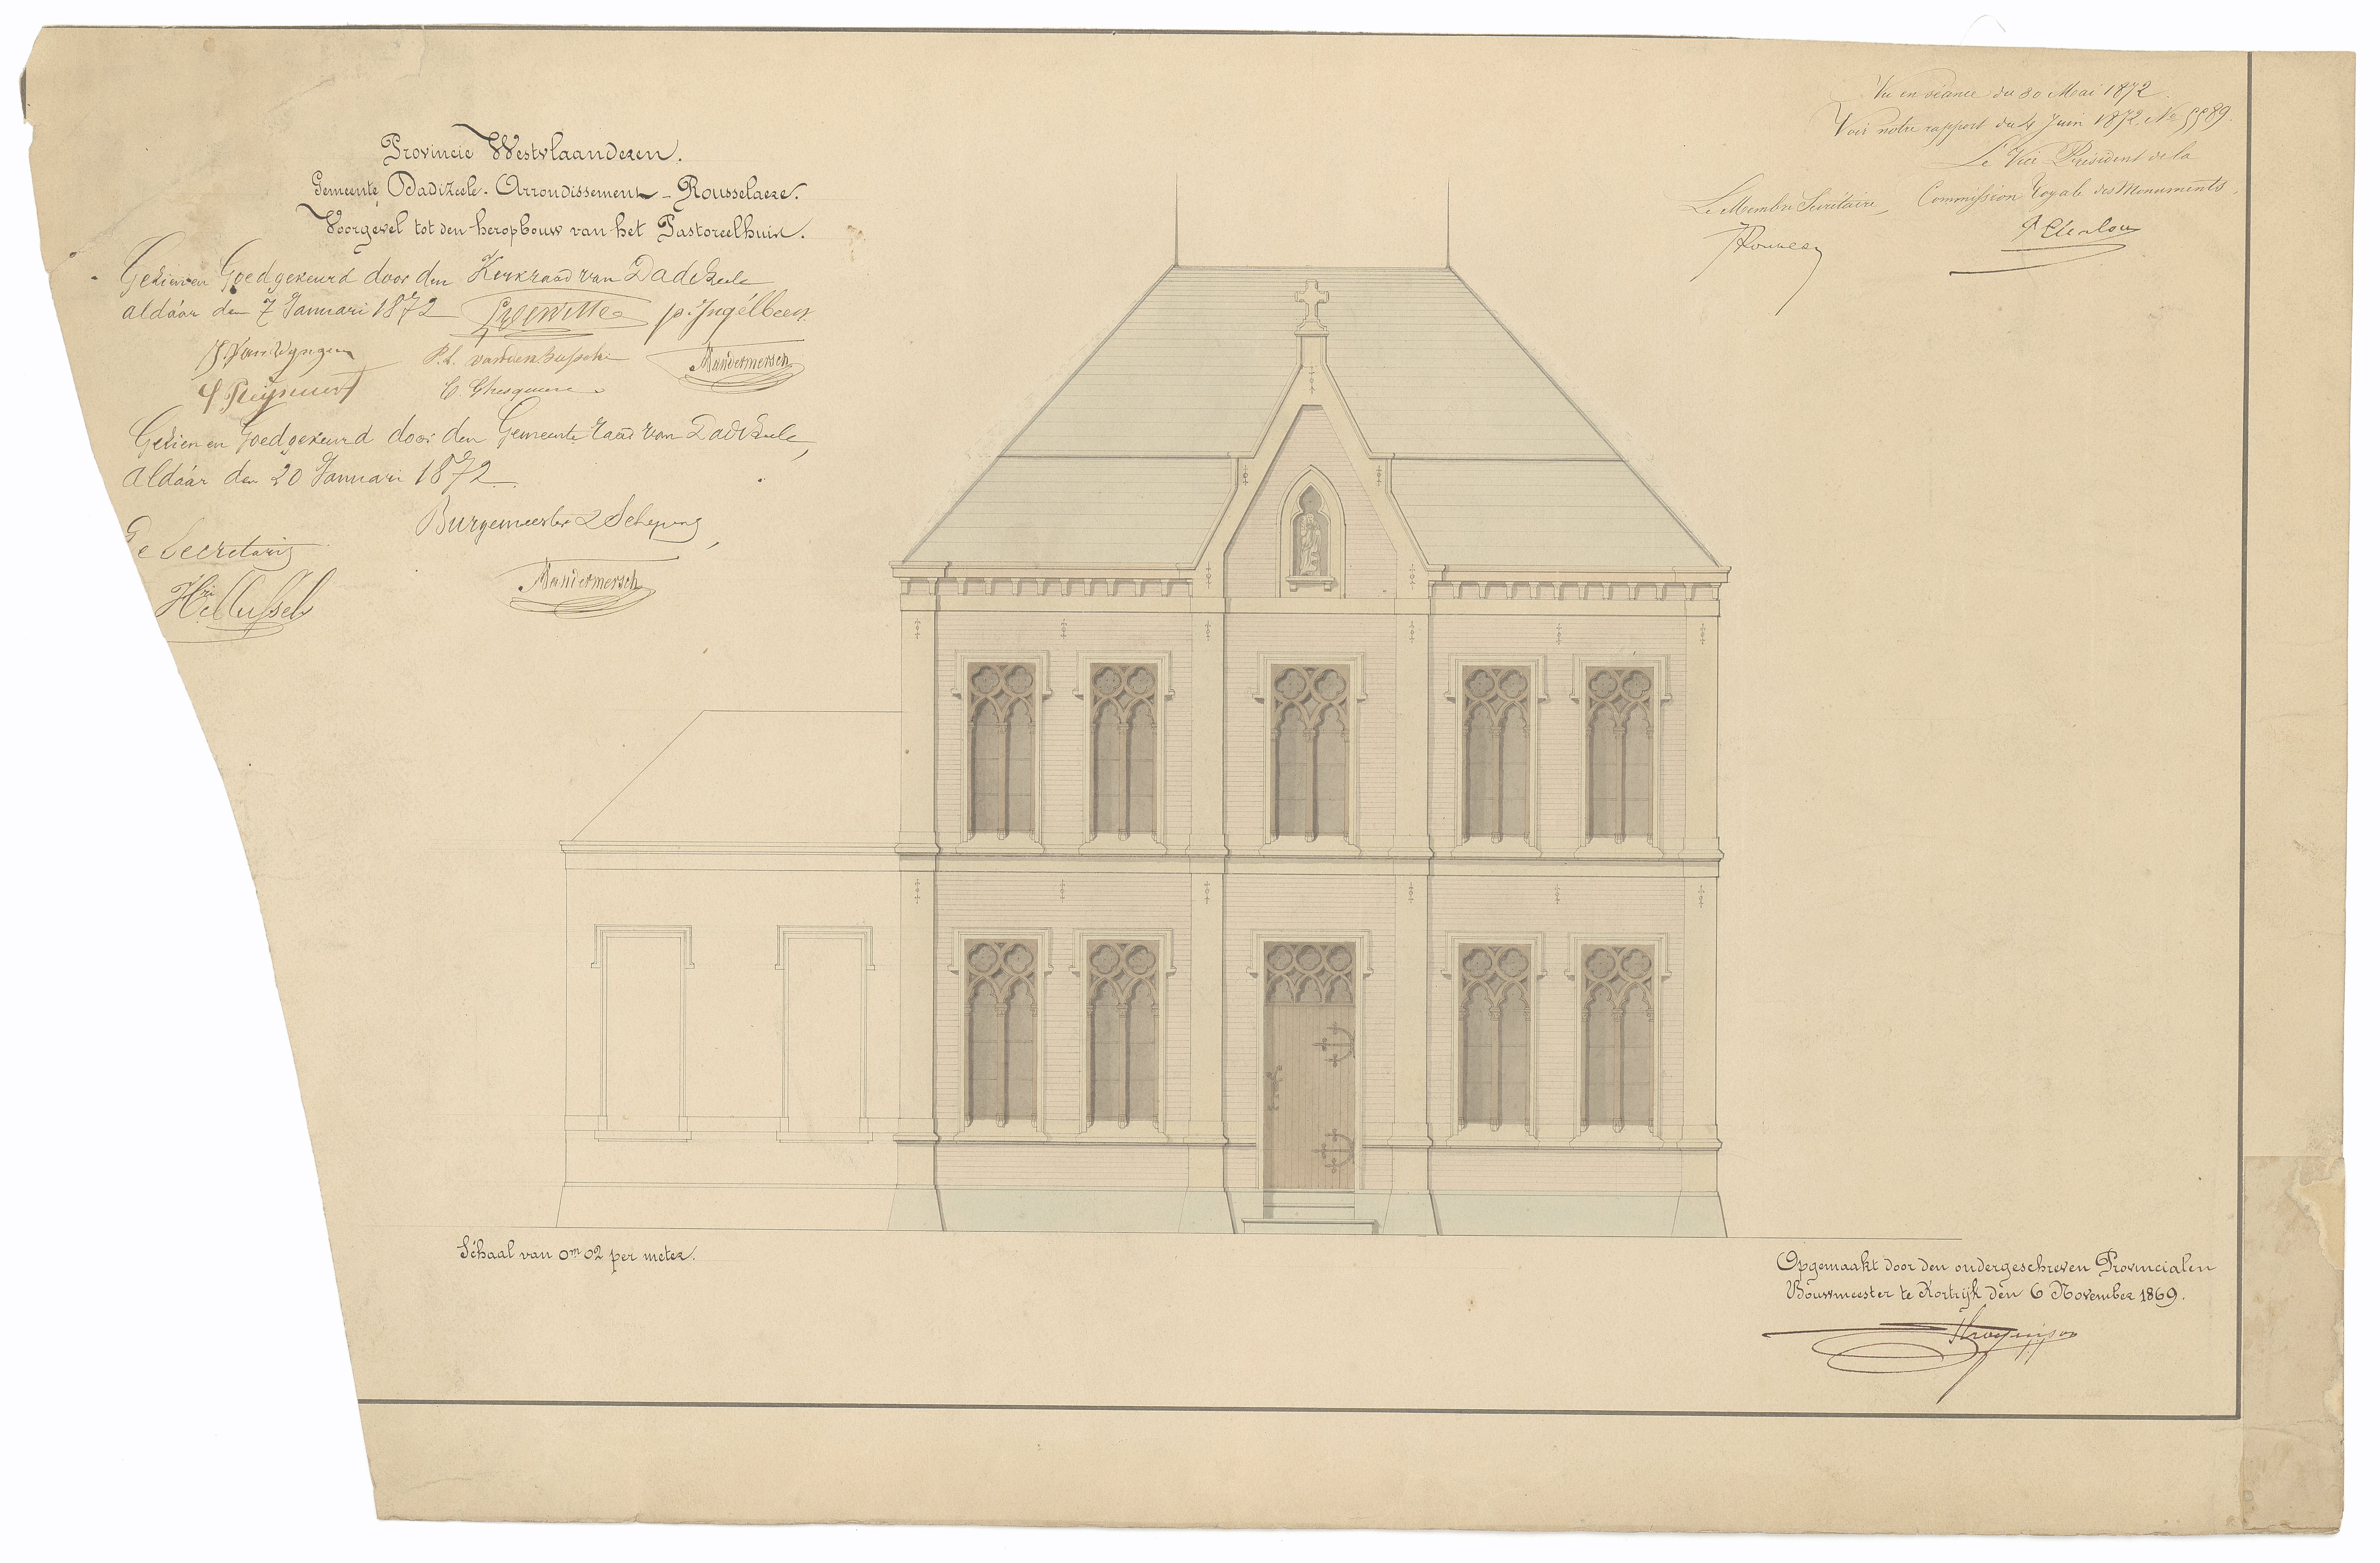 Provincie Westvlaanderen.
Gemeente Dadizeele. Arrondissement - Rousselaere.
Voorgevel tot den heropbouw van het Pastoreelhuis.
Gezien en Goedgekeurd door den Kerkraad van Dadizeele
aldáár den 7 Januari 1872
P. L. vandenbussche
Vandermersch
C. Ghesquiere
Gezien en Goedgekeurd door den Gemeente raad van Dadizeele,
aldáár den 20 Januari 1872.
Burgemeester & Schepens,
De Secretaris
Vandermersch
Vu en séance du 30 Mai 1872.
Voir notre rapport du 4 Juin 1872, No 5589.
Le Vice Président de la
Le Membre Secrétaire, Commission royale des Monuments,
Schaal van 0m 02 per meter.
Opgemaakt door den ondergeschreven Provincialen
Bouwmeester te Kortrijk den 6 November 1869.